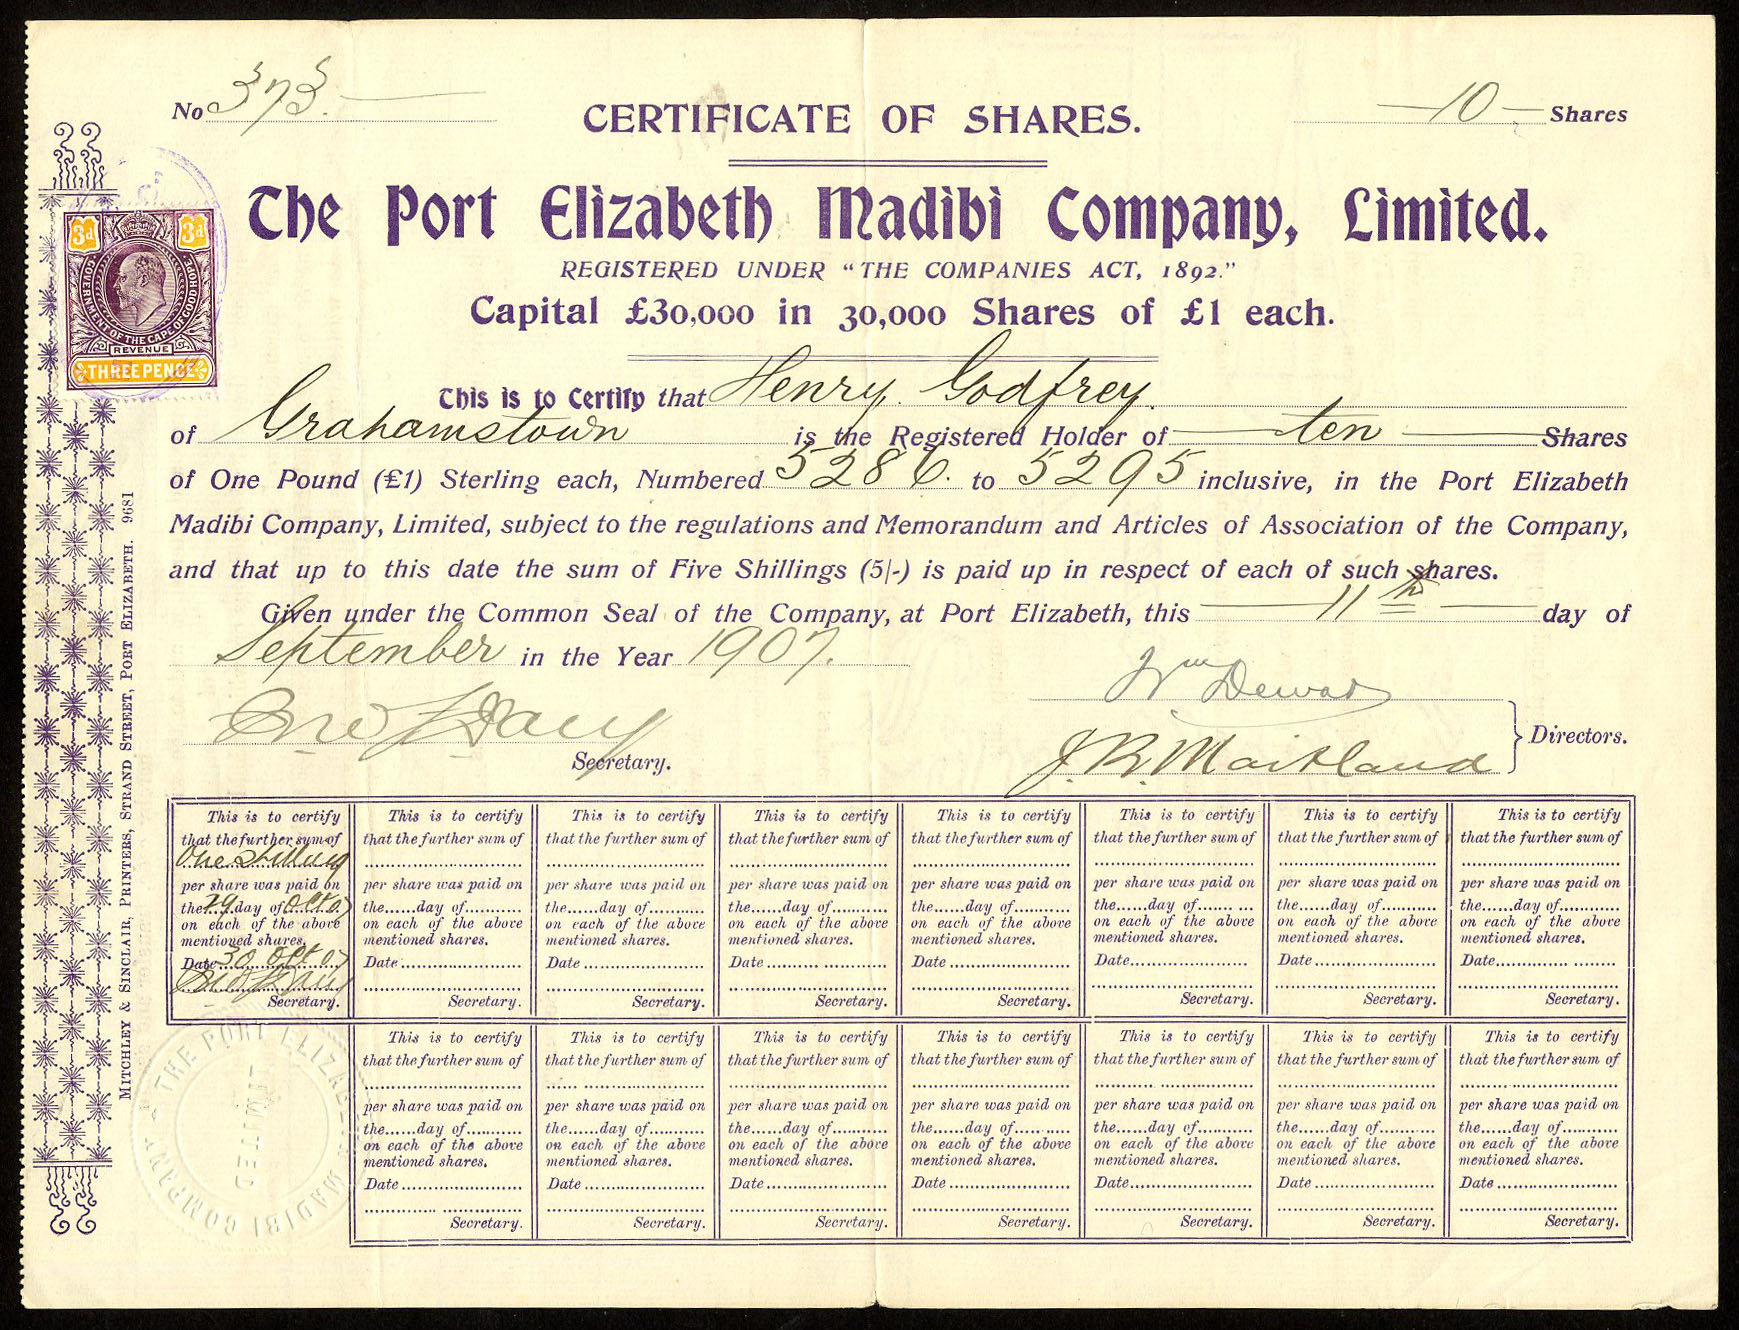 No 373. 10 Shares
CERTIFICATE OF SHARES.
The Port Elizabeth Madibi Company, Limited.
REGISTERED UNDER "THE COMPANIES ACT, 1892."
Capital £30,000 in 30,000 Shares of £1 each.
3d 3d
GOVERNMENT OF THE CAPE OF GOOD HOPE
REVENUE
THREE PENCE
This is to Certify that Henry Godfrey.
of Grahamstown is the Registered Holder of ten Shares
of One Pound (£1) Sterling each, Numbered 5286. to 5295 inclusive, in the Port Elizabeth
Madibi Company, Limited, subject to the regulations and Memorandum and Articles of Association of the Company,
and that up to this date the sum of Five Shillings (5/-) is paid up in respect of each of such shares.
Given under the Common Seal of the Company, at Port Elizabeth, this 11th day of
September in the Year 1907.
Wm Dewar
J.R. Maitland
Directors.
Secretary.
MITCHLEY & SINCLAIR, PRINTERS, STRAND STREET, PORT ELIZABETH. 9681
This is to certify This is to certify This is to certify This is to certify This is to certify This is to certify This is to certify This is to certify
that the further sum of that the further sum of that the further sum of that the further sum of that the further sum of that the further sum of that the further sum of that the further sum of
One Shilling
per share was paid on per share was paid on per share was paid on per share was paid on per share was paid on per share was paid on per share was paid on per share was paid on
the 29 day of Oct 07 the......day of........... the......day of........... the......day of........... the......day of........... the......day of........... the......day of........... the......day of...........
on each of the above on each of the above on each of the above on each of the above on each of the above on each of the above on each of the above on each of the above
mentioned shares. mentioned shares. mentioned shares. mentioned shares. mentioned shares. mentioned shares. mentioned shares. mentioned shares.
Date 30 Oct 07 Date Date Date Date Date Date Date
Secretary. Secretary. Secretary. Secretary. Secretary. Secretary. Secretary. Secretary.
This is to certify This is to certify This is to certify This is to certify This is to certify This is to certify This is to certify
that the further sum of that the further sum of that the further sum of that the further sum of that the further sum of that the further sum of that the further sum of
per share was paid on per share was paid on per share was paid on per share was paid on per share was paid on per share was paid on per share was paid on
the......day of........... the......day of........... the......day of........... the......day of........... the......day of........... the......day of........... the......day of...........
on each of the above on each of the above on each of the above on each of the above on each of the above on each of the above on each of the above
mentioned shares. mentioned shares. mentioned shares. mentioned shares. mentioned shares. mentioned shares. mentioned shares.
Date Date Date Date Date Date Date
Secretary. Secretary. Secretary. Secretary. Secretary. Secretary. Secretary.
THE PORT ELIZABETH MADIBI COMPANY
LIMITED